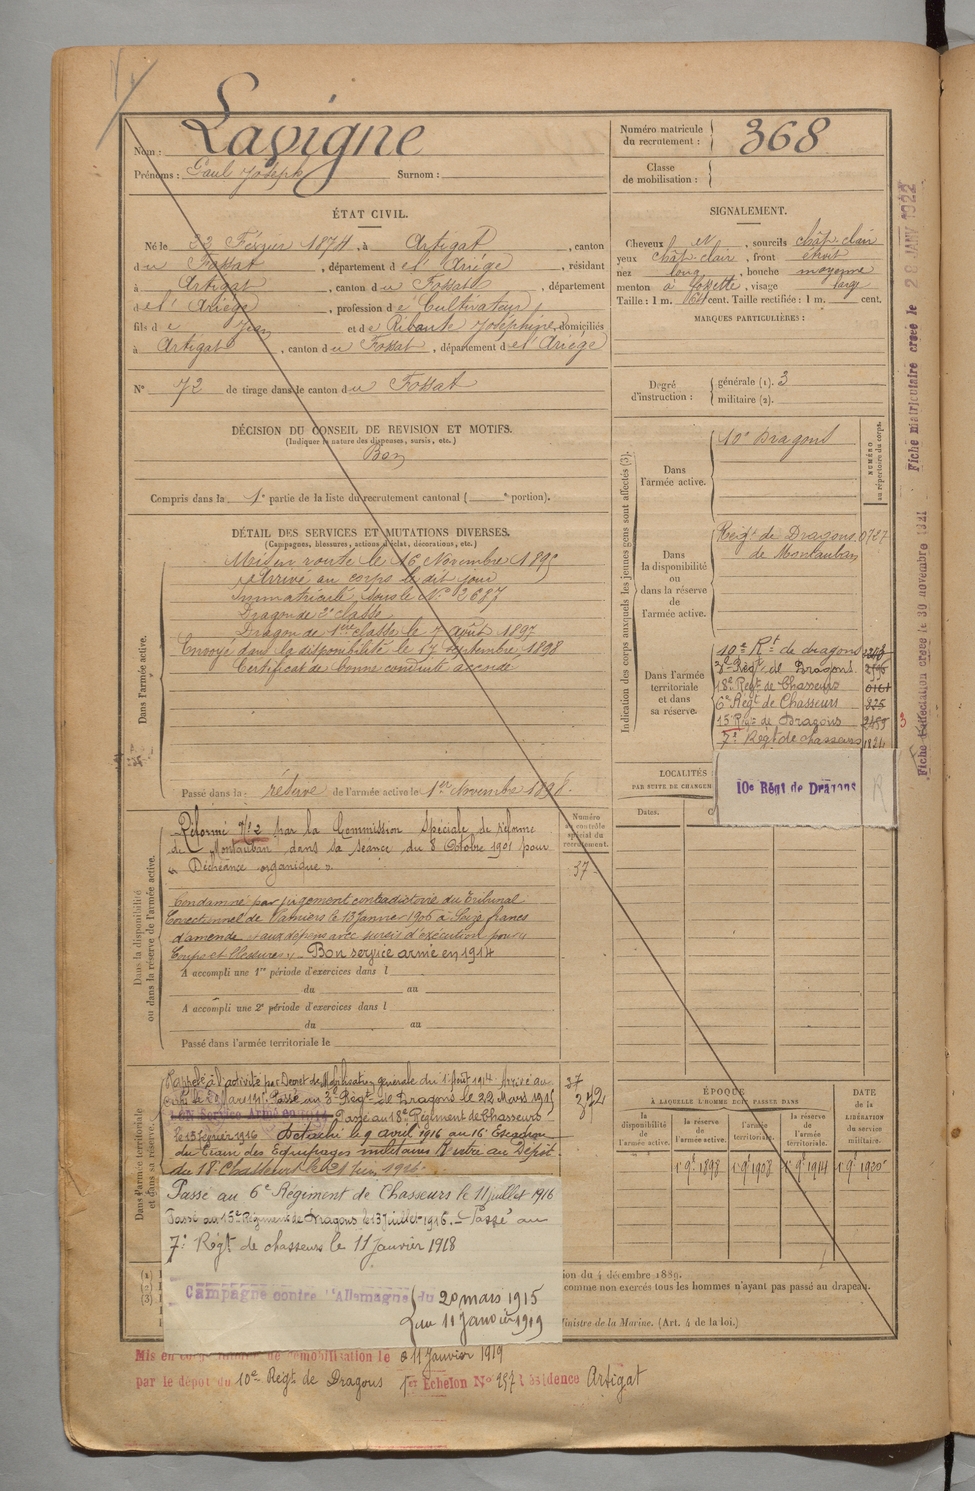 Nom : Lavigne
Prénoms : Paul Joseph Surnom :
Numéro matricule du recrutement : 368
Classe de mobilisation :
ÉTAT CIVIL.
Né le 22 Février 1874, à Artigat, canton
du Fossat, département de l'Ariège, résidant
à Artigat, canton du Fossat, département
de l'Ariège, profession de Cultivateur,
fils de Jean et de Ribaute Joséphine, domiciliés
à Artigat, canton du Fossat, département de l'Ariège
N° 72 de tirage dans le canton du Fossat
SIGNALEMENT.
Cheveux et, sourcils chât. clair
yeux chât. clair, front étroit
nez long, bouche moyenne
menton à fossette, visage large
Taille : 1 m. cent. Taille rectifiée : 1 m. cent.
MARQUES PARTICULIÈRES :
Degré d'instruction : générale (1). 3
militaire (2).
DÉCISION DU CONSEIL DE REVISION ET MOTIFS.
(Indiquer la nature des dispenses, sursis, etc.)
Bon
Compris dans la 1e partie de la liste du recrutement cantonal ( e portion).
DÉTAIL DES SERVICES ET MUTATIONS DIVERSES.
(Campagnes, blessures, actions d'éclat, décorations, etc.)
Dans l'armée active.
Mis en route le 16 Novembre 1895
Arrivé au corps le dit jour
Immatriculé sous le N° 2687
Dragon de 2e classe
Dragon de 1ère classe le 7 Août 1897
Envoyé dans la disponibilité le 17 septembre 1898
Certificat de bonne conduite accordé
Passé dans la réserve de l'armée active le 1er Novembre 1898.
Dans la disponibilité ou dans la réserve de l'armée active.
Réformé N° 2 par la Commission Spéciale de réforme
de Montauban dans sa séance du 8 Octobre 1901 pour
« Déchéance organique ».
Condamné par jugement contradictoire du Tribunal
Correctionnel de Pamiers le 13 Janvier 1906 à Seize francs
d'amende et aux dépens avec sursis d'exécution pour «
Coups et blessures ». Bon service armé en 1914
A accompli une 1re période d'exercices dans l
du au
A accompli une 2e période d'exercices dans l
du au
Passé dans l'armée territoriale le
Numéro au contrôle spécial du recrutement.
37
Dans l'armée territoriale et dans sa réserve.
Rappelé à l'activité par Décret de Mobilisation générale du 1er Août 1914 Arrivé au
corps le Mars 1915. Passé au 3e Régt de Dragons le 22 Mars 1915
BON Service Armé en 1914 Passé au 18e Régiment de Chasseurs
le 15 février 1916 Détaché le 9 avril 1916 au 16e Escadron
du Train des Equipages militaires Rentré au Dépôt
du 18e Chasseurs le 21 Juin 1916.
37
372
Passé au 6e Régiment de Chasseurs le 11 juillet 1916
Passé au 15e Régiment de Dragons le 13 Juillet 1916. Passé au
7e Régt de chasseurs le 11 Janvier 1918
Campagne contre l'Allemagne du 20 mars 1915
au 11 Janvier 1919
Indication des corps auxquels les jeunes gens sont affectés (3).
NUMÉRO au répertoire du corps.
Dans l'armée active.
10e Dragons
Dans la disponibilité ou dans la réserve de l'armée active.
Régt de Dragons 0727
de Montauban
Dans l'armée territoriale et dans sa réserve.
10e Rt de dragons
3e Régt de Dragons
18e Régt de Chasseurs
6e Régt de Chasseurs 825
15e Régt de Dragons 2455 3
7e Régt de chasseurs 1824
10e Régt de Dragons
R
LOCALITÉS
PAR SUITE DE CHANGEM
Dates.
ÉPOQUE
À LAQUELLE L'HOMME DOIT PASSER DANS
la disponibilité de l'armée active.
la réserve de l'armée active.
l'armée territoriale.
la réserve de l'armée territoriale.
DATE de la LIBÉRATION du service militaire.
1e 9bre 1898
1e 9bre 1908
1e 9bre 1914
1e 9bre 1920
(1)
(2)
(3)
ion du 4 décembre 1889.
comme non exercés tous les hommes n'ayant pas passé au drapeau.
Ministre de la Marine. (Art. 4 de la loi.)
Mis en congé de démobilisation le 11 Janvier 1919
par le dépôt du 10e Régt de Dragons 1er Echelon N° 257 résidence Artigat
Fiche d'affectation créée le 30 novembre 1921
Fiche matriculaire créée le 28 JANV 1922